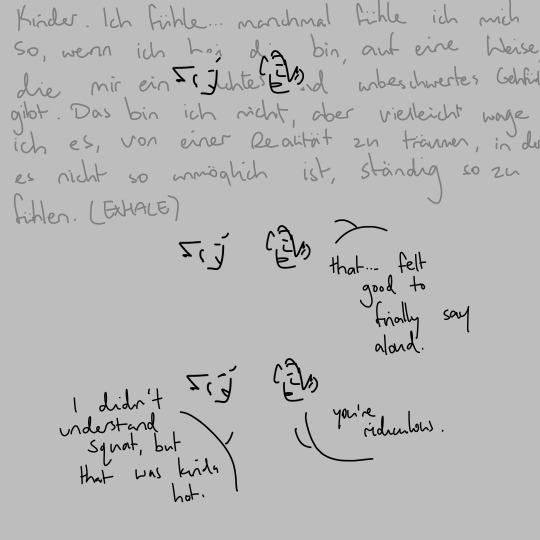 Kinder. Ich fühle... manchmal fühle ich mich
so, wenn ich bei dir bin, auf eine Weise,
die mir ein und unbeschwertes Gefühl
gibt. Das bin ich nicht, aber vielleicht wage
ich es, von einer Realität zu träumen, in der
es nicht so unmöglich ist, ständig so zu
fühlen. (EXHALE)
that... felt
good to
finally say
aloud.
I didn't
understand
squat, but
that was kinda
hot.
you're
ridiculous.